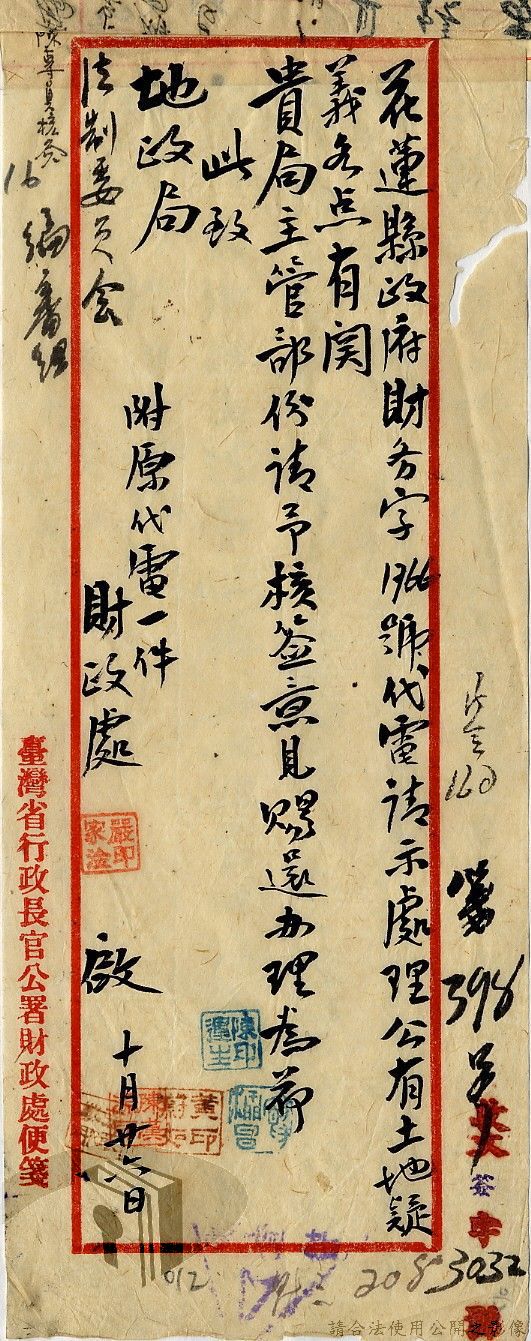 花蓮縣政府財务字1766號代電請示處理公有土地疑
義各点有関
貴局主管部份請予核簽意見賜還办理為荷
此致
地政局
法制委员会
附原代電一件
財政處
啟
十月廿六日
嚴印家淦
黃印
陳印
臺灣省行政長官公署財政處便箋
編審組
16
398号
3032
208
012
160
簽
字
請合法使用公開之影像